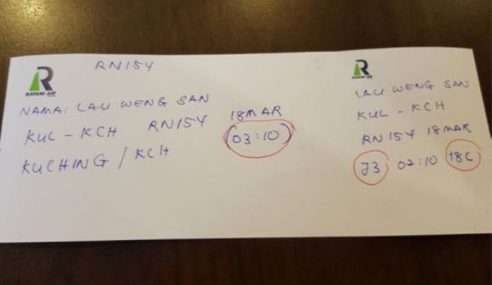 RAYANI AIR
RN154
NAMA: LAU WENG SAN
18MAR
KUL - KCH RN154 (03:10)
KUCHING / KCH
LAU WENG SAN
KUL - KCH
RN 154 18 MAR
J3 02:10 18C